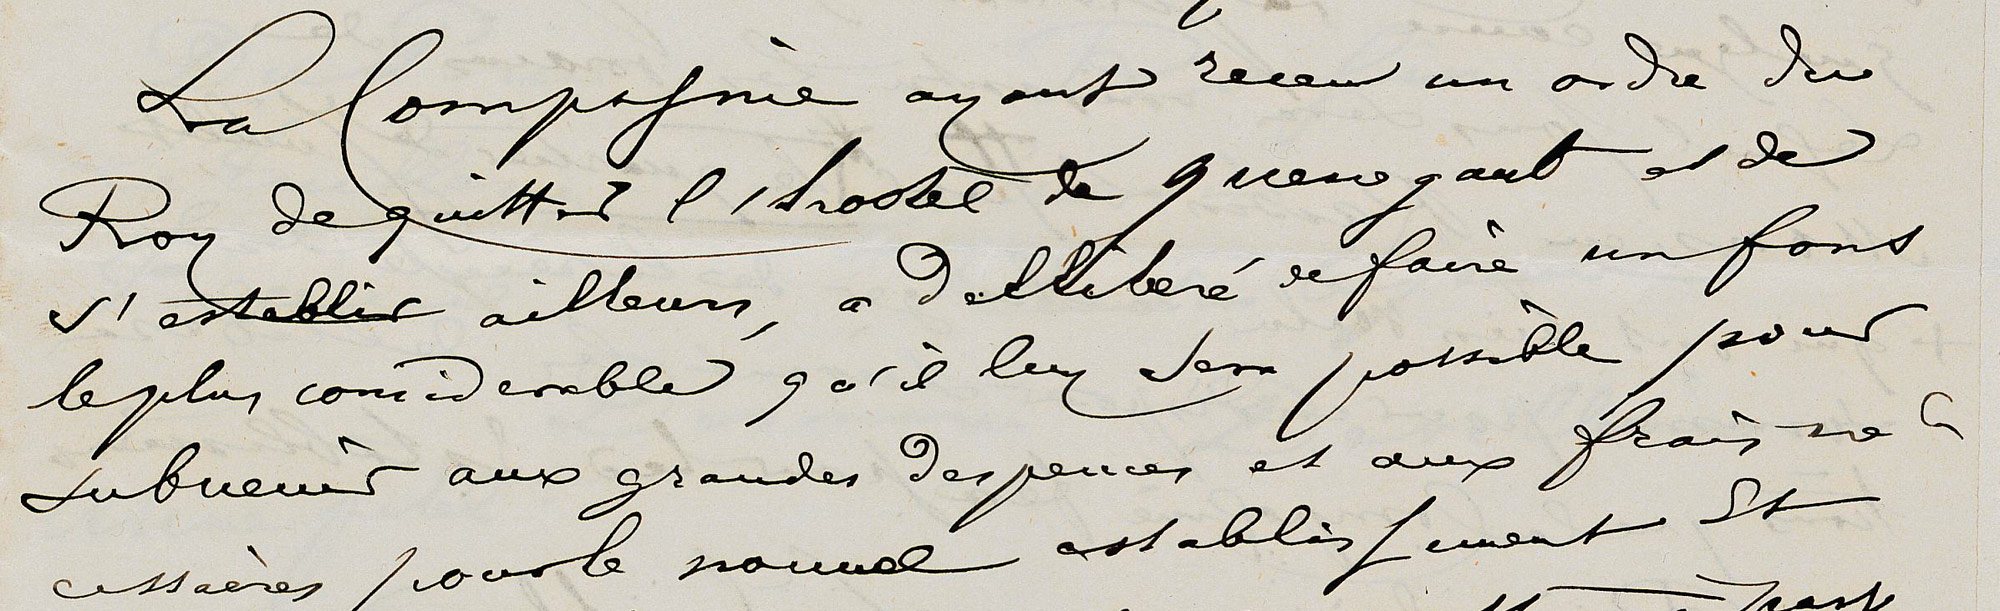 La Compagnie ayant receu un ordre du
Roy de quitter l'hostel de guenegault et de
s'establir ailleurs, a dellibéré de faire un fons
le plus considerable qu'il luy sera possible pour
subvenir aux grandes despences et aux frais né
cessaires pour le nouvel establissement Et